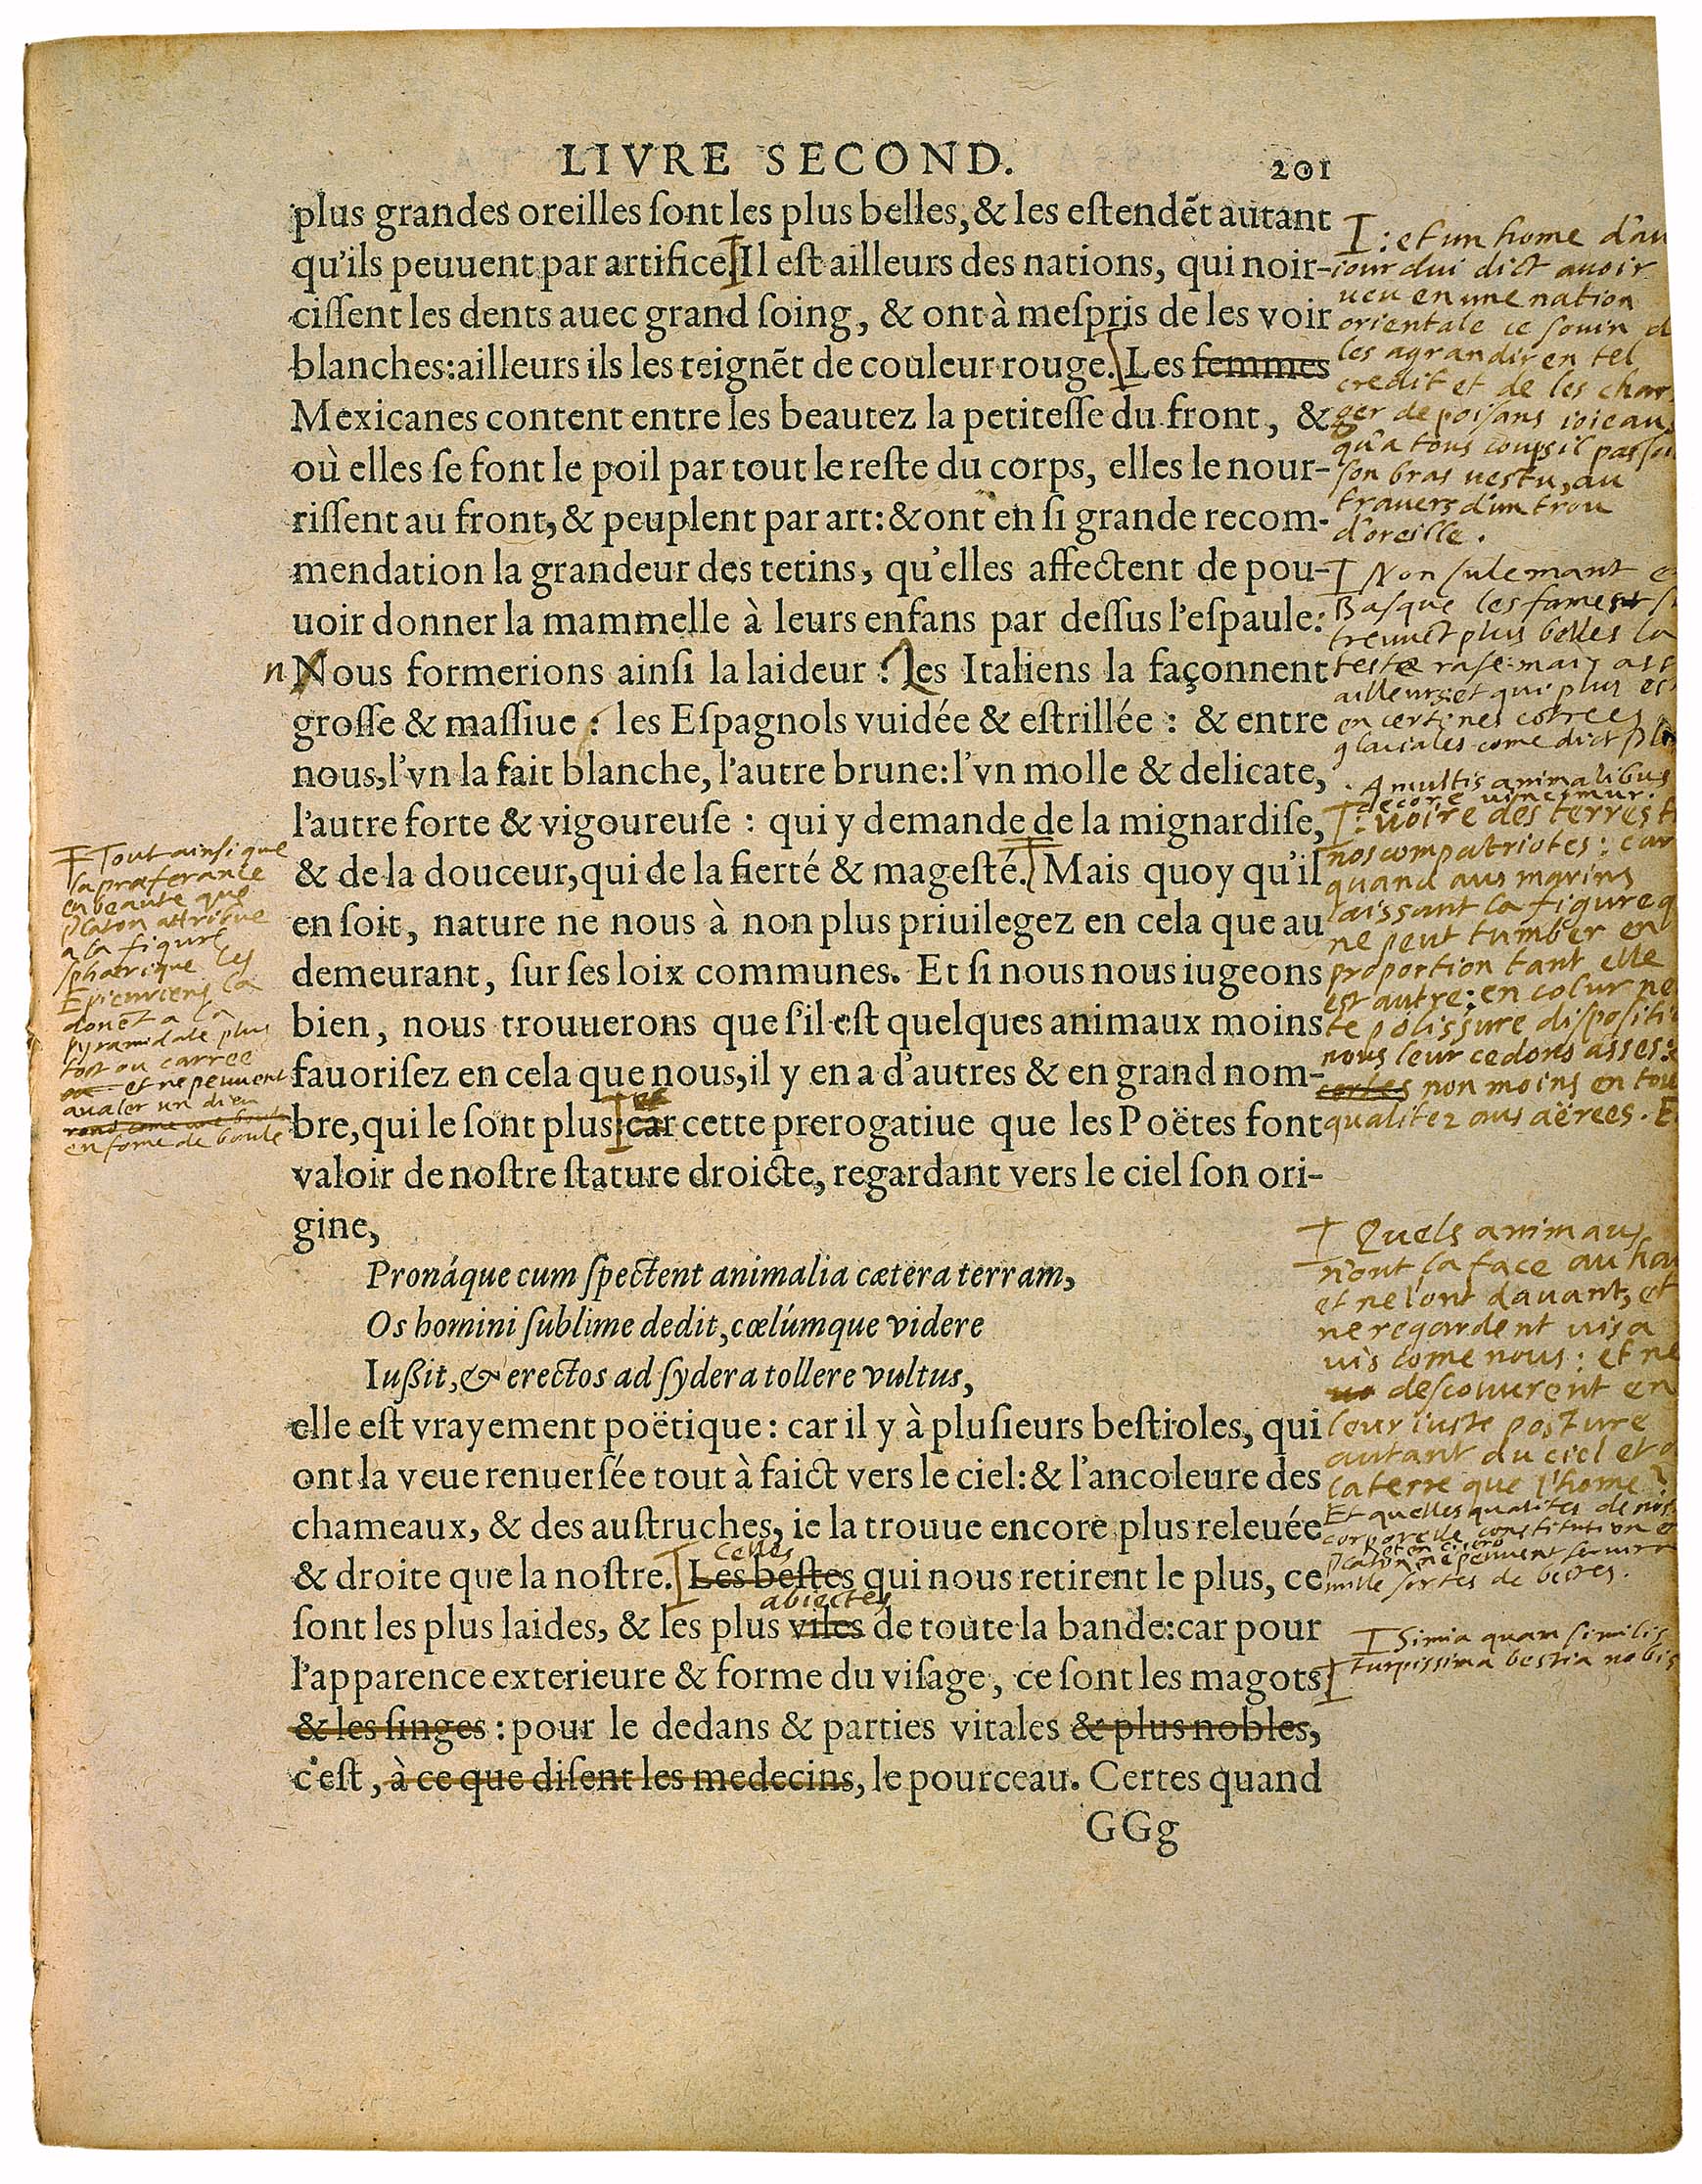 LIVRE SECOND. 201
plus grandes oreilles ſont les plus belles, & les eſtendẽt autant
qu'ils peuuent par artifice Il eſt ailleurs des nations, qui noir-
ciſſent les dents auec grand ſoing, & ont à meſpris de les voir
blanches: ailleurs ils les teignẽt de couleur rouge. Les femmes
Mexicanes content entre les beautez la petiteſſe du front, &
où elles ſe font le poil par tout le reſte du corps, elles le nour-
riſſent au front, & peuplent par art: & ont en ſi grande recom-
mendation la grandeur des tetins, qu'elles affectent de pou-
uoir donner la mammelle à leurs enfans par deſſus l'eſpaule:
n Nous formerions ainſi la laideur. Les Italiens la façonnent
groſſe & maſſiue : les Eſpagnols vuidée & eſtrillée : & entre
nous, l'vn la fait blanche, l'autre brune: l'vn molle & delicate,
l'autre forte & vigoureuſe : qui y demande de la mignardiſe,
& de la douceur, qui de la fierté & mageſté. Mais quoy qu'il
en ſoit, nature ne nous à non plus priuilegez en cela que au
demeurant, ſur ſes loix communes. Et ſi nous nous iugeons
bien, nous trouuerons que ſ'il eſt quelques animaux moins
fauoriſez en cela que nous, il y en a d'autres & en grand nom-
bre, qui le ſont plus: car cette prerogatiue que les Poëtes font
valoir de noſtre ſtature droicte, regardant vers le ciel ſon ori-
gine,
Pronáque cum ſpectent animalia cætera terram,
Os homini ſublime dedit, cœlúmque videre
Iußit, & erectos ad ſydera tollere vultus,
elle eſt vrayement poëtique : car il y à pluſieurs beſtioles, qui
ont la veue renuerſée tout à faict vers le ciel: & l'ancoleure des
chameaux, & des auſtruches, ie la trouue encore plus releuée
celles
& droite que la noſtre. Les beſtes qui nous retirent le plus, ce
abiectes
ſont les plus laides, & les plus viles de toute la bande: car pour
l'apparence exterieure & forme du viſage, ce ſont les magots
& les ſinges : pour le dedans & parties vitales & plus nobles,
c'eſt, à ce que diſent les medecins, le pourceau. Certes quand
GGg
: et un home d'au
iourdui dict auoir
ueu en une nation
orientale ce souin d
les agrandir en tel
credit et de les char
ger de poisans ioieau
qu'a tous coups il passoi
son bras uestu, au
trauers d'un trou
d'oreille.
Non sulemant e
Basque les fames s
treuuet plus belles la
teste rase: mais ass
ailleurs: et qui plus es
en certenes cotrees
glaciales come dict pli
A multis animalibus
decore uincimur.
: uoire des terrest
nos compatriotes: car
quand aus marins
laissant la figure q
ne peut tumber en
proportion tant elle
est autre: en colur ne
te polissure dispositi
nous leur cedons asses:
certes non moins en tou
qualitez aus aërees. E
Tout ainsi que
la præferance
en beaute que
Platon attribue
a la figure
sphærique les
Epicuriens la
donet a la
pyramidale plus
tost ou carree
et ne peuuent
aualer un dieu
en forme de boule
Quels animaus
n'ont la face au hau
et ne l'ont dauant, et
ne regardent uis a
uis come nous: et ne
descouurent en
leur iuste posture
autant du ciel et d
la terre que l'home?
Et quelles qualites de nos
corporelle constitution e
Platon et en Cicero
ne peuuent seruir a
mille sortes de betes.
Simia quam similis
turpissima bestia nobis